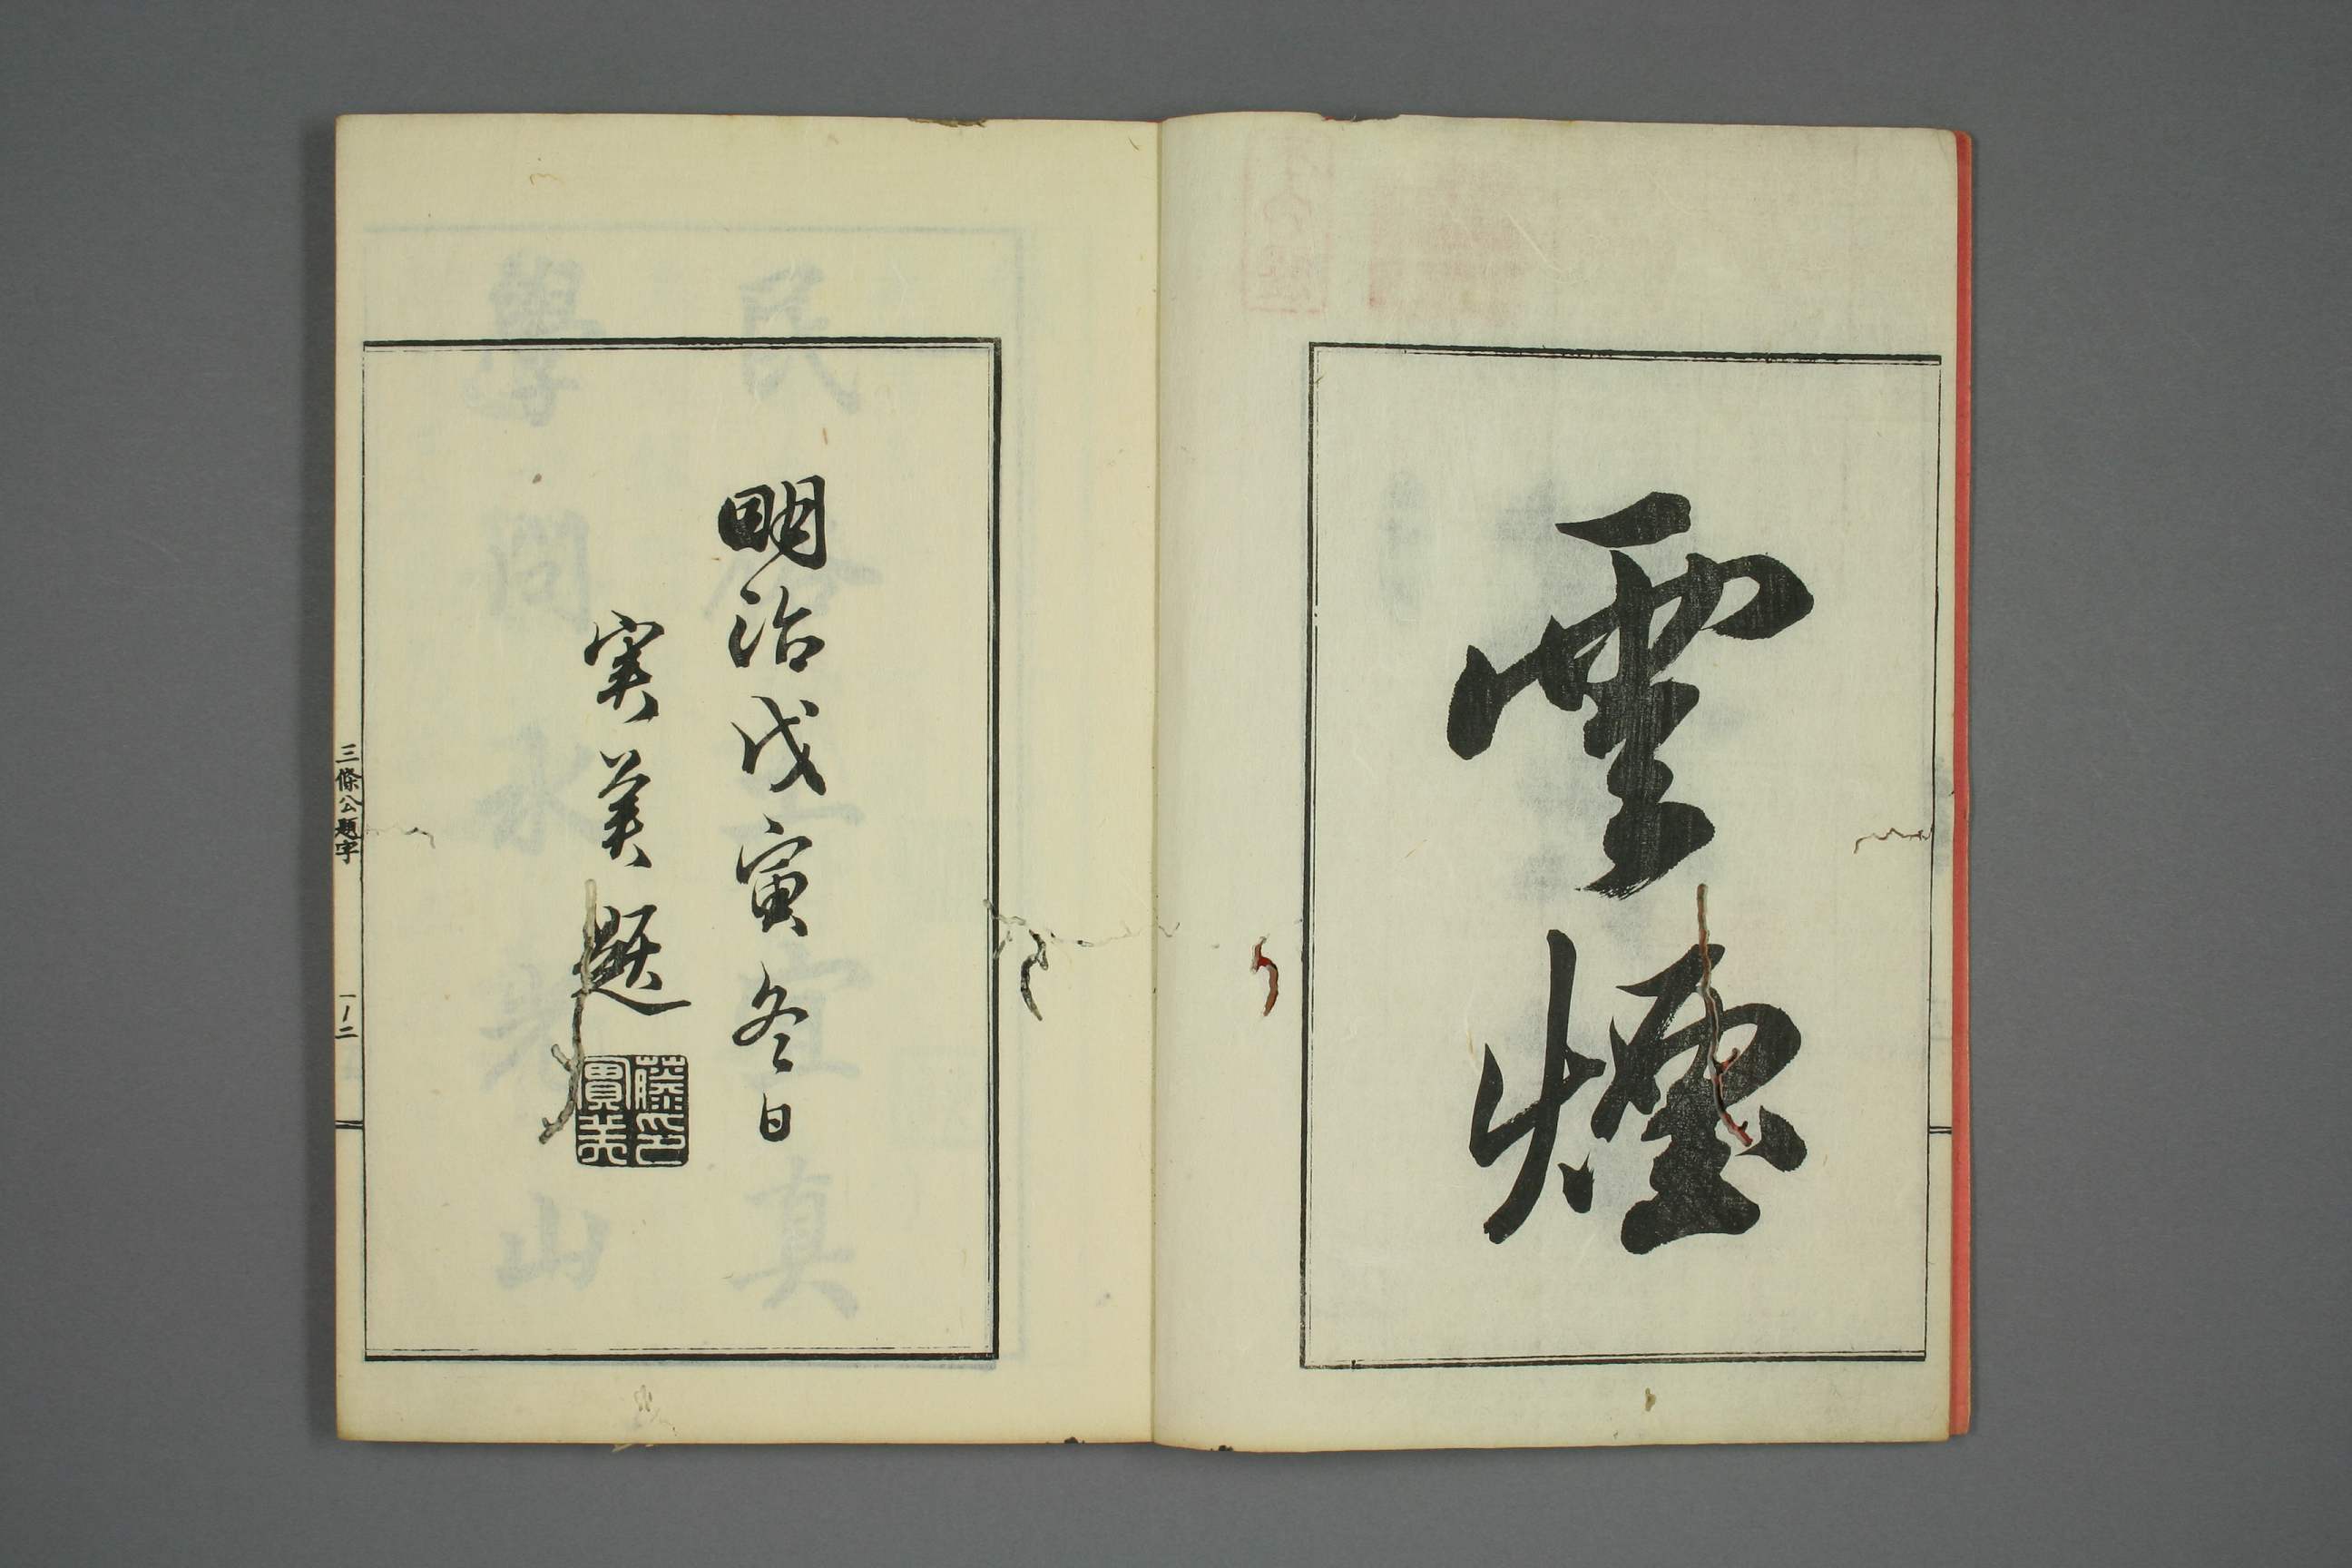 雲煙
明治戊寅冬日
実美題
藤印
實美
三條公題字
一ノ二